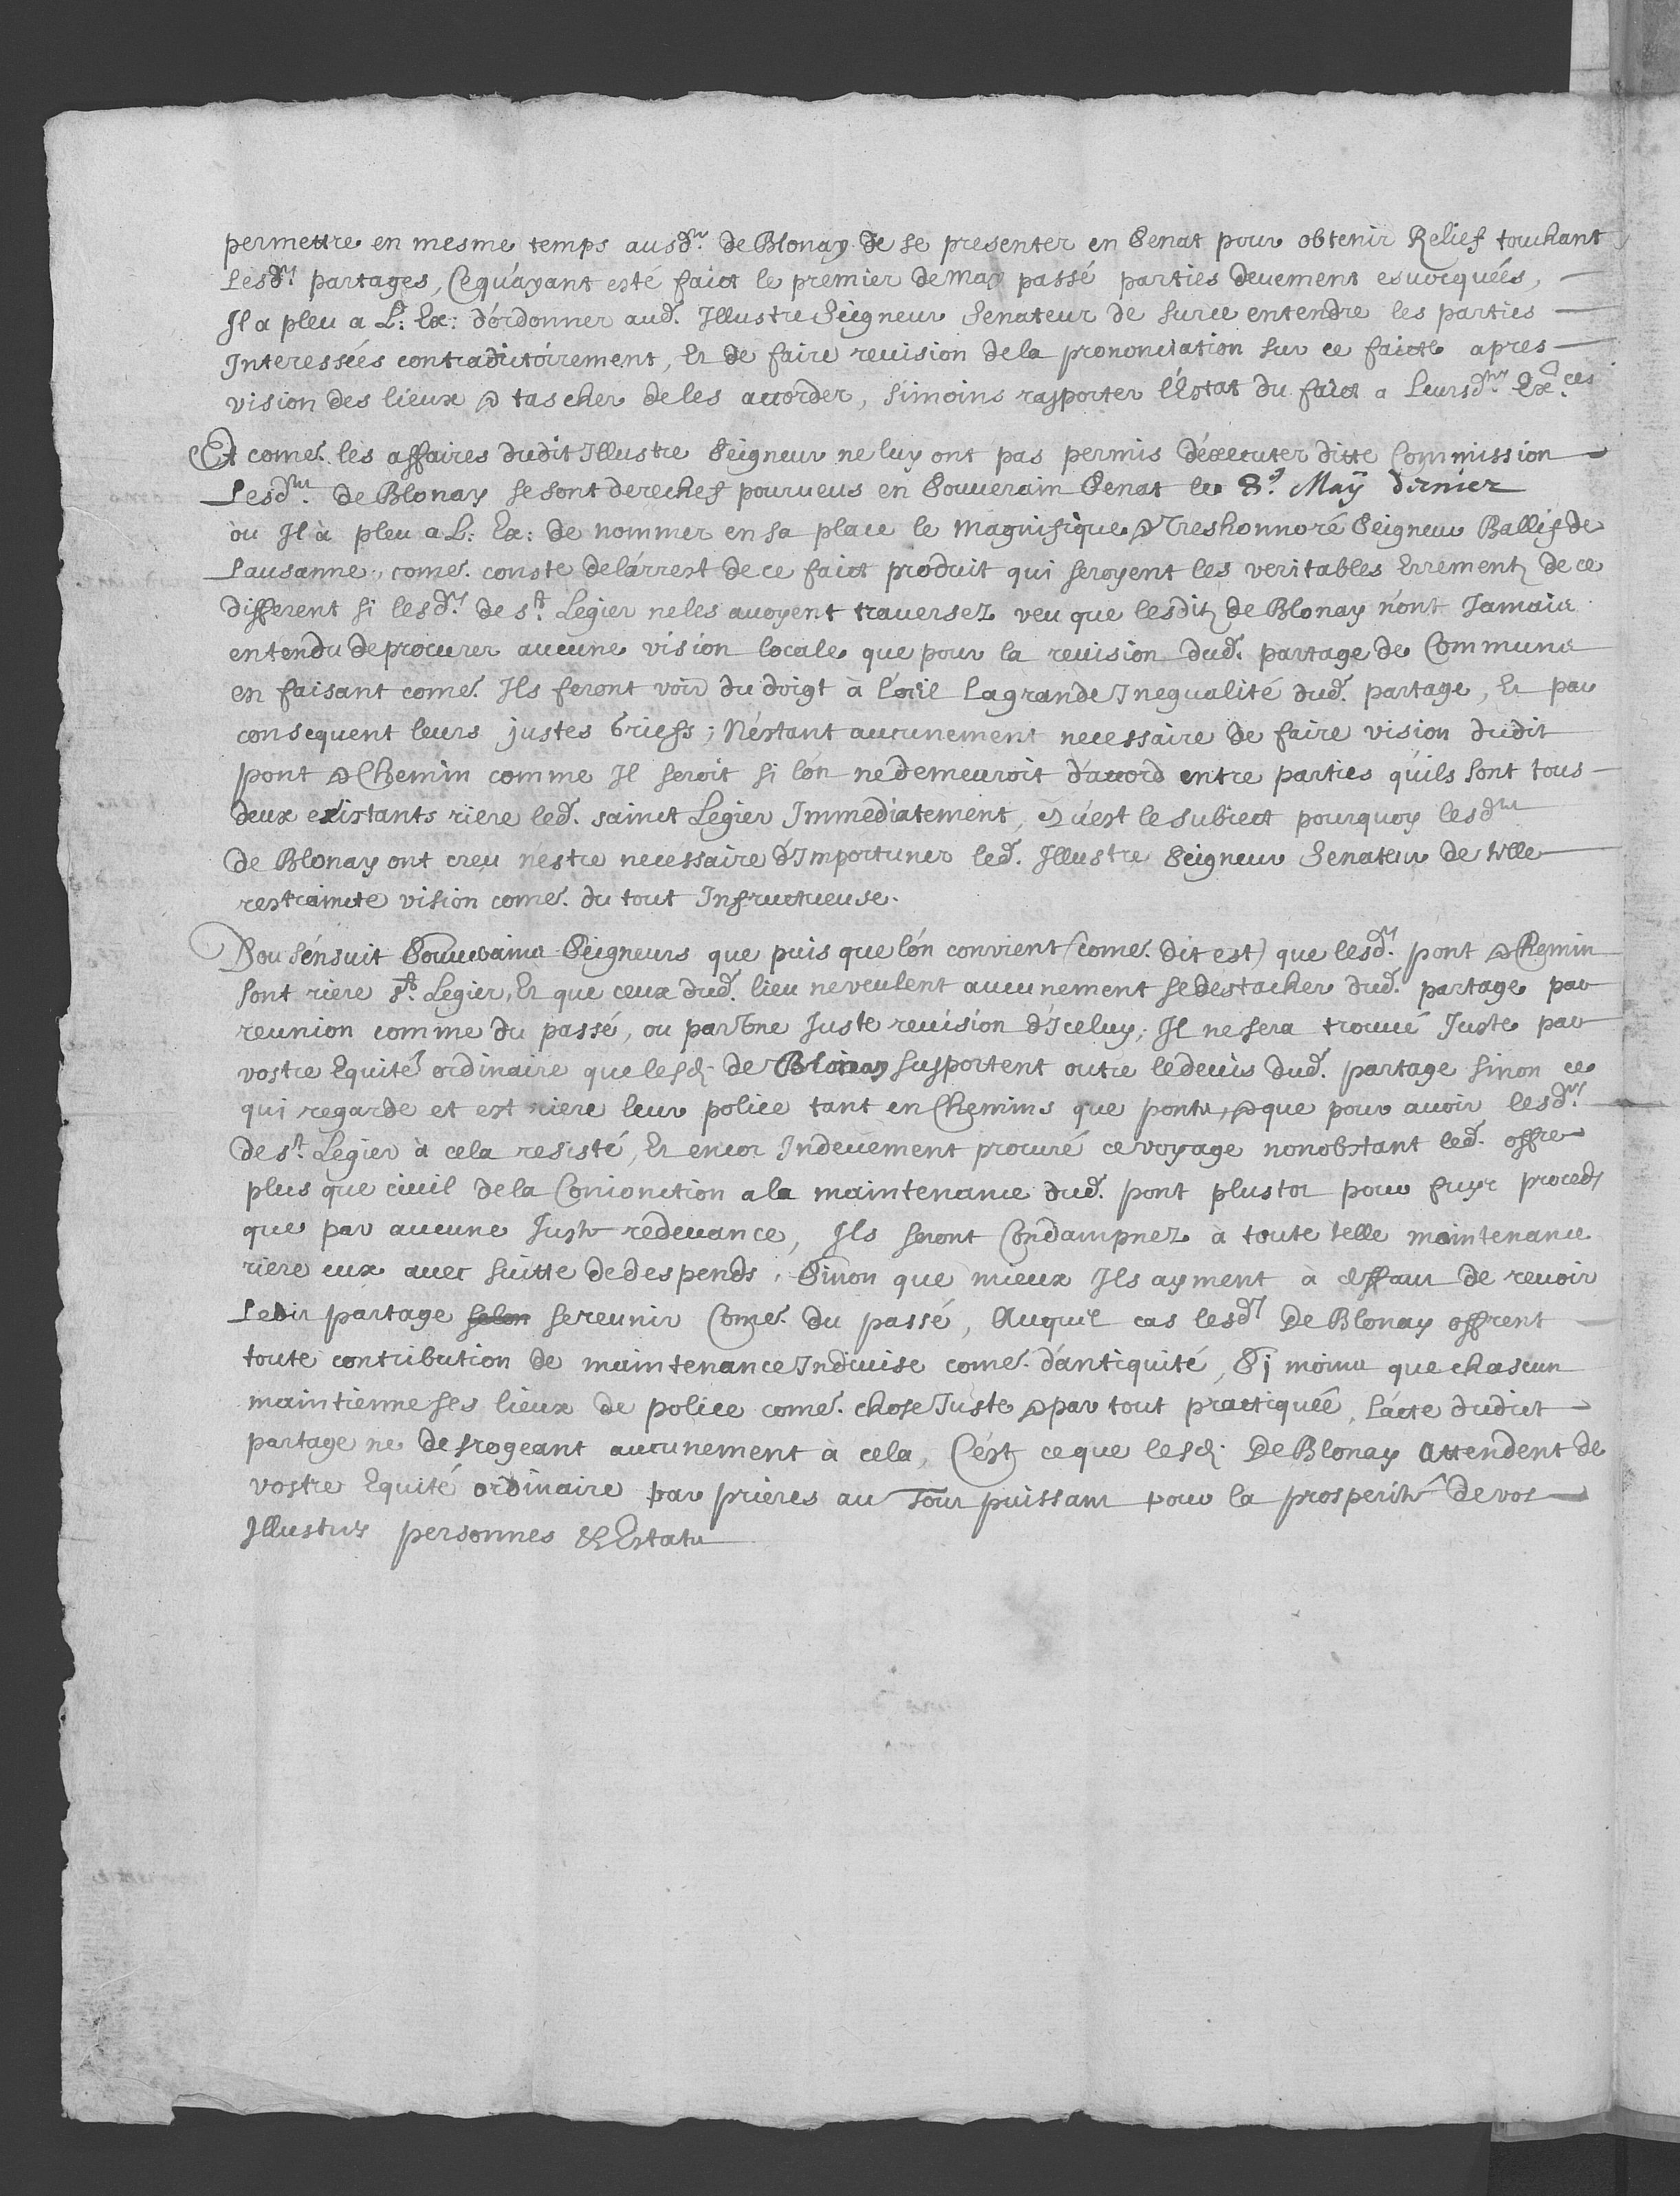 permettre en mesme temps ausd.rs de Blonay de se presenter en Senat pour obtenir Relief touchant
lesd.s partages, Cequ'ayant esté faict le premier de may passé parties deuement esvocquées,
Il a pleu a L: Ex: d'ordonner aud. Illustre Seigneur Senateur de surce entendre les parties
Interessées contradictoirement, Et de faire revision dela prononciation sur ce faicte apres
vision des lieux & tascher deles accorder, Simoins rapporter l'Estat du faict a Leursd.rs Ex.ces
Et come. les affaires dudit Illustre Seigneur ne luy ont pas permis d'executer ditte Commission
Lesd.ts de Blonay se sont derechef pourveus en Souverain Senat le 8.e Maÿ dernier
où Il à pleu a L: Ex: de nommer en sa place le Magnifique & Treshonnoré Seigneur Ballif de
Lausanne, come. conste del'arrest de ce faict produit qui seroyent les veritables Errements de ce
different si lesd.s de s.t Legier neles avoyent traversez veu que lesdits de Blonay n'ont Jamais
entendu deprocurer aucune vision locale que pour la revision dud. partage de Communs
en faisant come. Ils feront voir du doigt à l'oeil lagrande Inegualité dud. partage, Et par
consequent leurs justes Griefs; N'estant aucunement necessaire de faire vision dudit
pont & Chemin comme Il seroit si l'on nedemeuroit d'accord entre parties qu'ils sont tous
deux existants riere led. sainct Legier Immediatement, qu'est le subiect pourquoy lesd.ts
de Blonay ont creu n'estre necessaire d'Importuner led. Illustre Seigneur Senateur de telle
restraincte vision come. du tout Infructueuse.
Dou s'ensuit Souverains Seigneurs que puis que l'on convient (come. dit est) que lesd.s pont & Chemin
sont riere s.t Legier, Et que ceux dud. lieu neveulent aucunement sedestacher dud. partage par
reunion comme du passé, ou par Une Juste revision d'Iceluy; Il ne sera trouvé Juste par
vostre Equité ordinaire que lesd. de Blonay supportent outre ledevis dud. partage sinon ce
qui regarde et est riere leur police tant en Chemins que ponts, & que pour avoir lesd.rs
de s.t Legier à cela resisté, Et encor Indeuement procuré ce voyage nonobstant led. offre
plus que civil dela Conionction a la maintenance dud. pont plustot pour fuyr proceds
que par aucune Juste redevance, Ils seront Condampnez à toute telle maintenance
riere eux avec suitte dedespends, Sinon que mieux Ils ayment à deffaut de revoir
Ledit partage selon sereunir Come. du passé, Auquel cas lesd.s De Blonay offrent
toute contribution de maintenance Indivise come. d'antiquité, Si moins que chascun
maintienne ses lieux de police come. chose Juste & par tout practiquée, l'acte dudict
partage ne desrogeant aucunement à cela, C'est ceque lesd. De Blonay attendent de
vostre Equité ordinaire par prieres au Tout puissant pour la prosperité de vos
Illustres personnes & Estats